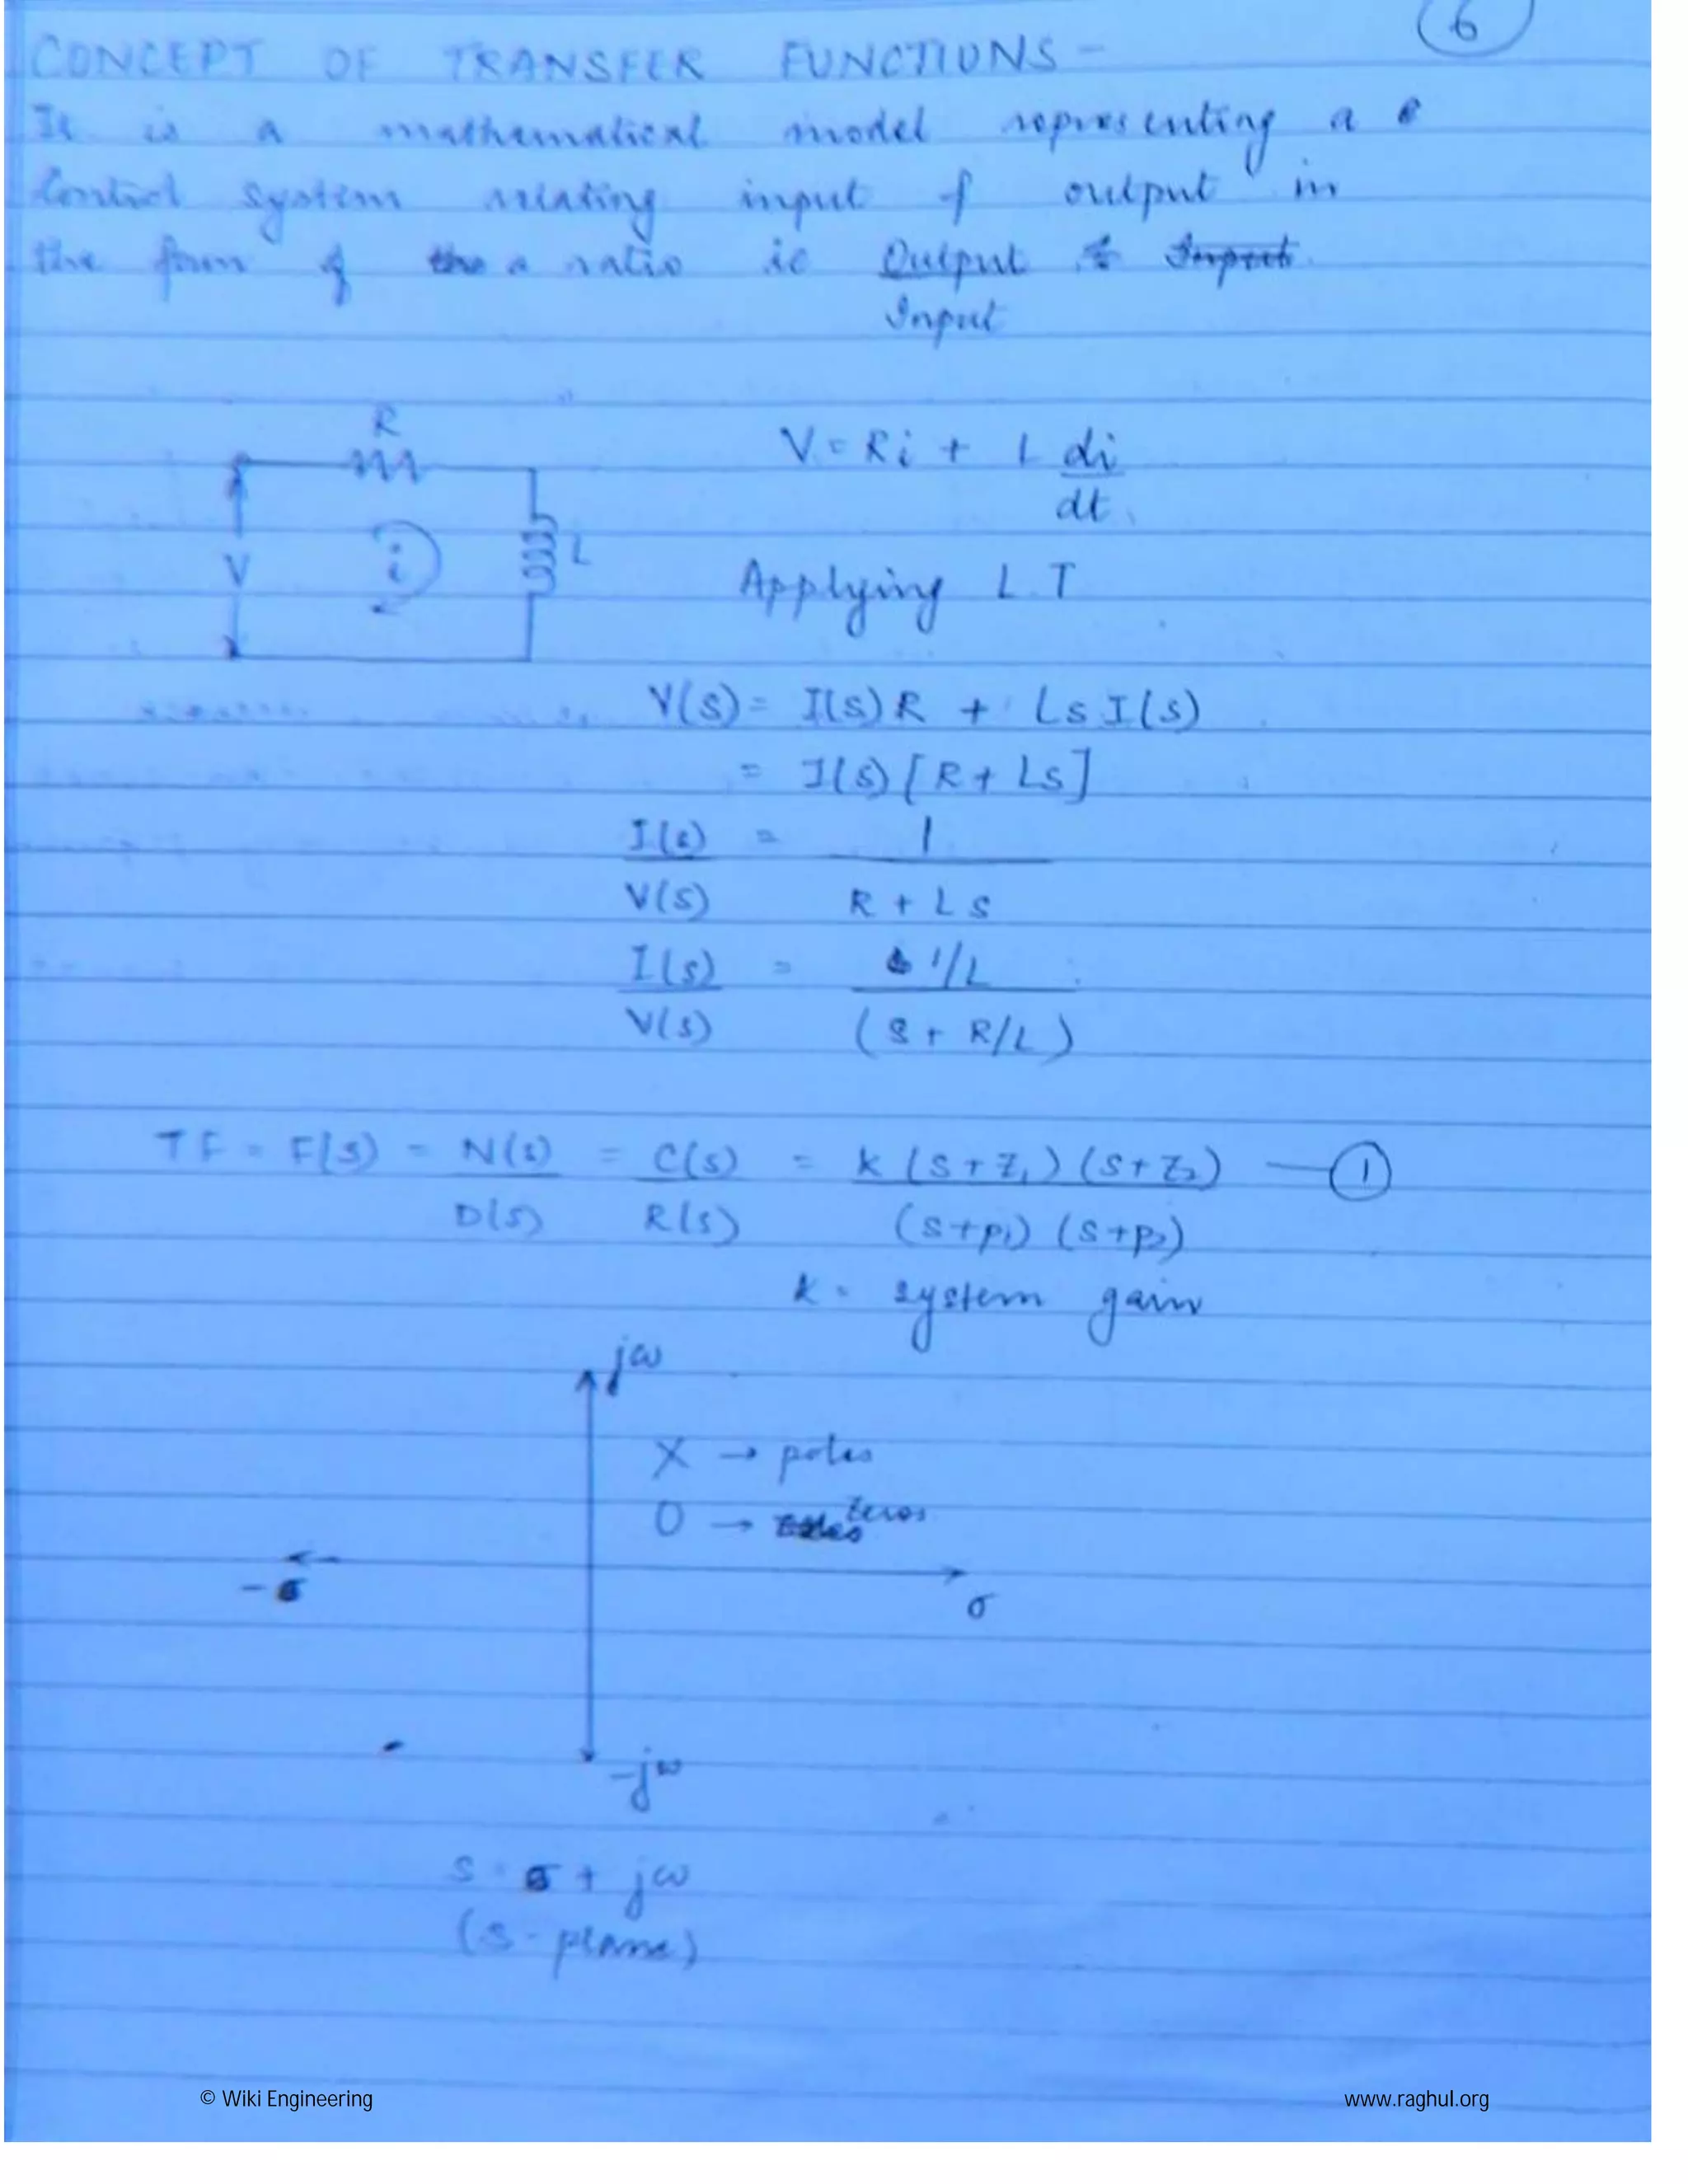 6
CONCEPT OF TRANSFER FUNCTIONS -
It is a mathematical model representing a
Control system relating input & output in
the form of a ratio ie Output
Input
R
V = Ri + L di
dt
V
i
L
Applying L.T
V(s) = I(s)R + Ls I(s)
= I(s) [R + Ls]
I(s) = 1
V(s) R + Ls
I(s) = 1/L
V(s) (s + R/L)
TF = F(s) = N(s) = C(s) = K (s+z₁) (s+z₂) — 1
D(s) R(s) (s+p₁) (s+p₂)
K = system gain
jω
X → poles
O → zeros
-σ
σ
-jω
s = σ + jω
(s-plane)
© Wiki Engineering
www.raghul.org